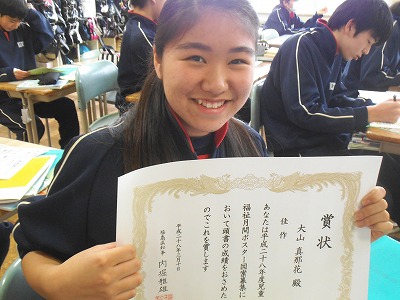 賞状
佳作
大山 真那花 殿
あなたは平成二十八年度児童
福祉月間ポスター図案募集に
おいて頭書の成績をおさめた
のでこれを賞します
平成二十八年
内堀雅雄